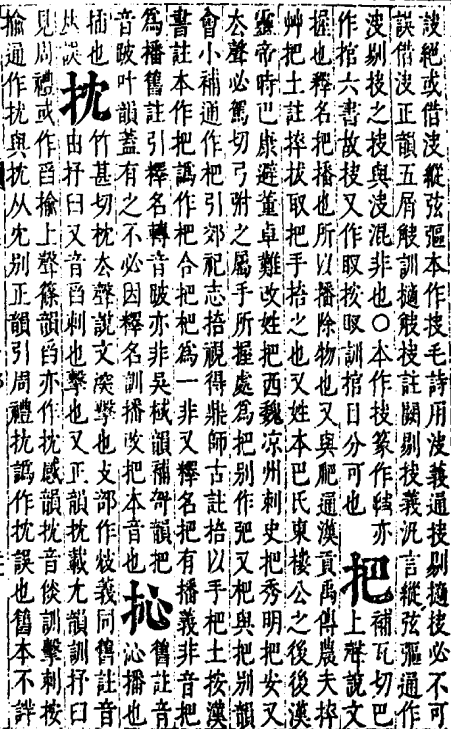 訣絕或借決縱弦彄本作抉毛詩用決義通抉剔擿抉必不可
誤借決正韻五屑觖訓擿觖抉註闕剔抉義汎言縱弦彄通作
決剔抉之抉與決混非也○本作抉篆作亦
作捾六書故抉又作按訓捾目分可也
把
補瓦切巴
上聲說文
握也釋名把播也所以播除物也又與爬通漢貢禹傳農夫捽
艸把土註捽拔取把手掊之也又姓本巴氏東樓公之後後漢
靈帝時巴康避董卓難改姓把西魏凉州刺史把秀明把安又
去聲必駡切弓弣之屬手所握處爲把別作弝又杷與把別韻
會小補通作杷引郊祀志掊視得鼎師古註掊以手杷土按漢
書註本作把譌作杷合把杷爲一非又釋名把有播義非音把
爲播舊註引釋名轉音陂亦非吳棫韻補哿韻把
音跛叶韻蓋有之不必因釋名訓播改把本音也
抋
舊註音
沁播也
插也
丛誤
抌
竹甚切枕去聲說文深擊也攴部作㪛義同舊註音
由抒臼又音舀刺也擊也又正韻抌載尤韻訓抒臼
見周禮或作舀揄上聲篠韻舀亦作抌感韻抌音倓訓擊刺按
揄通作扰與抌从冘別正韻引周禮抗譌作抌誤也舊本不詳